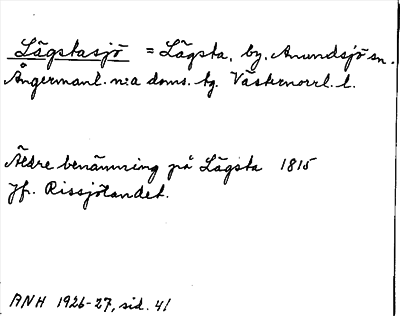 Lägstasjö = Lägsta, by, Anundsjö sn.
Ångermanl. n:a doms. tg. Västernorrl. l.
Äldre benämning på Lägsta 1815
Jf. Rissjölandet.
ANH 1926-27, sid. 41